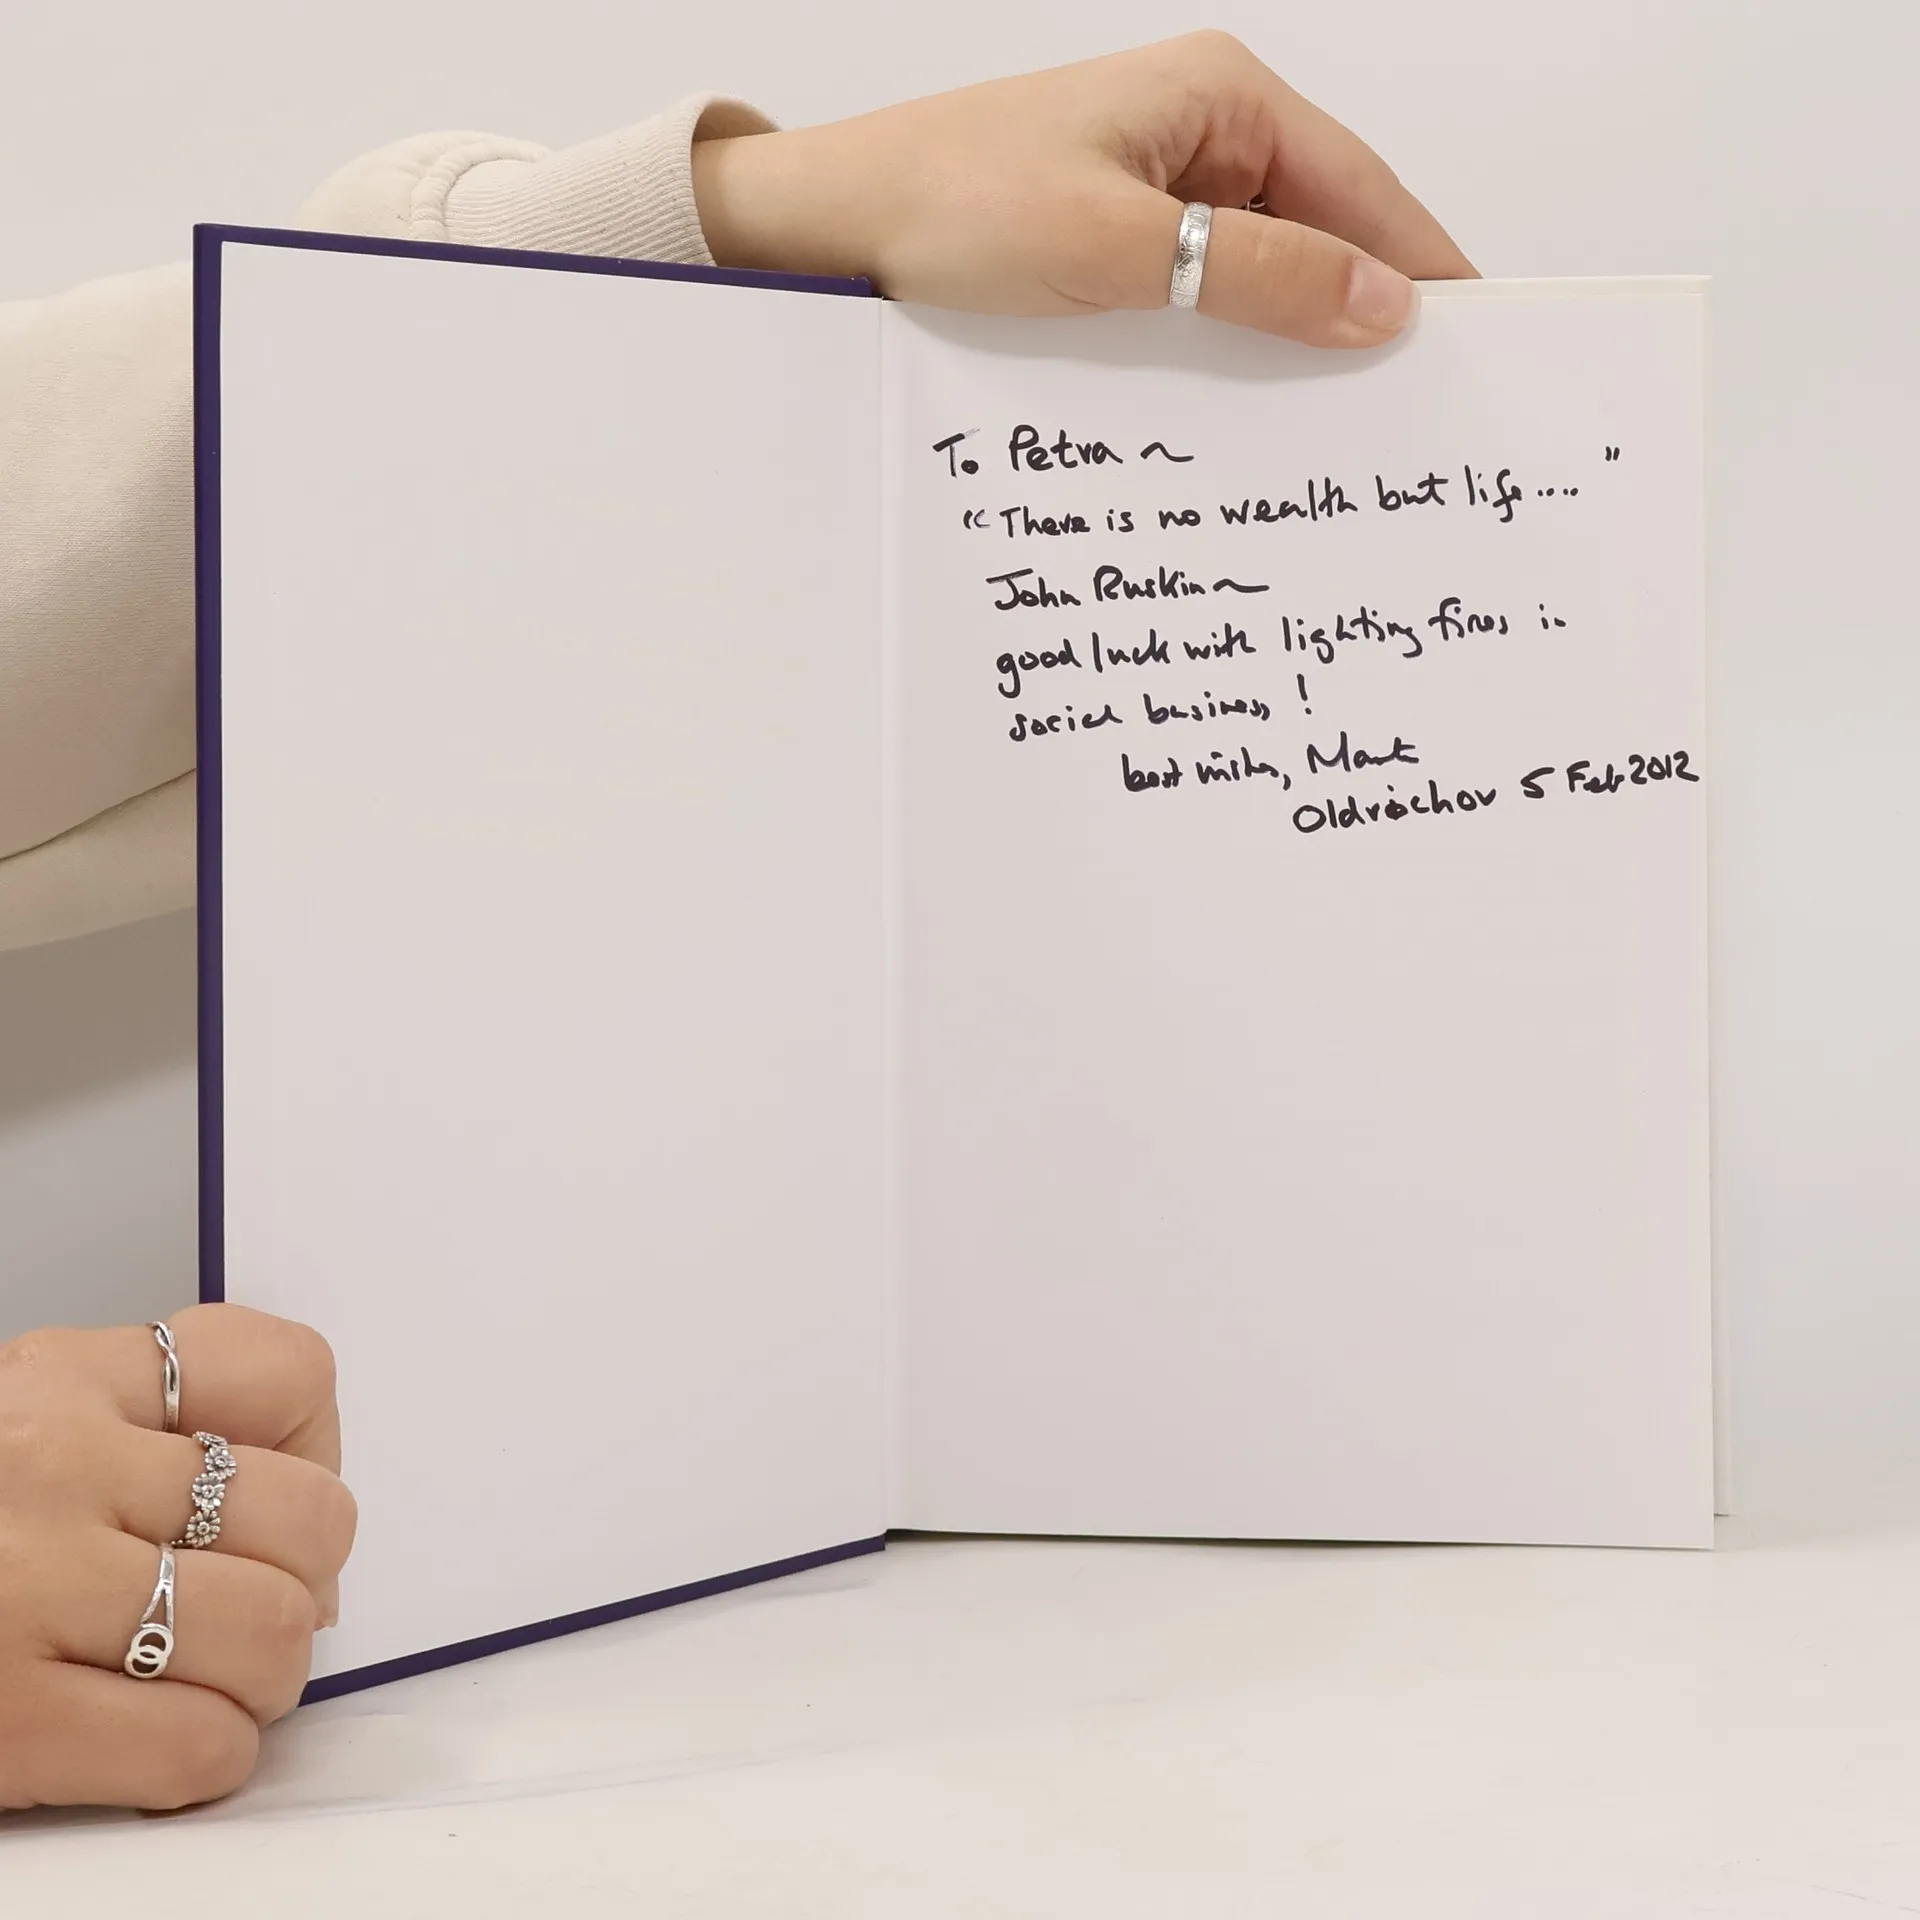 To Petra ~
"There is no wealth but life...."
John Ruskin ~
good luck with lighting fires in
social business!
best wishes, Mark
Oldrichov 5 Feb 2012